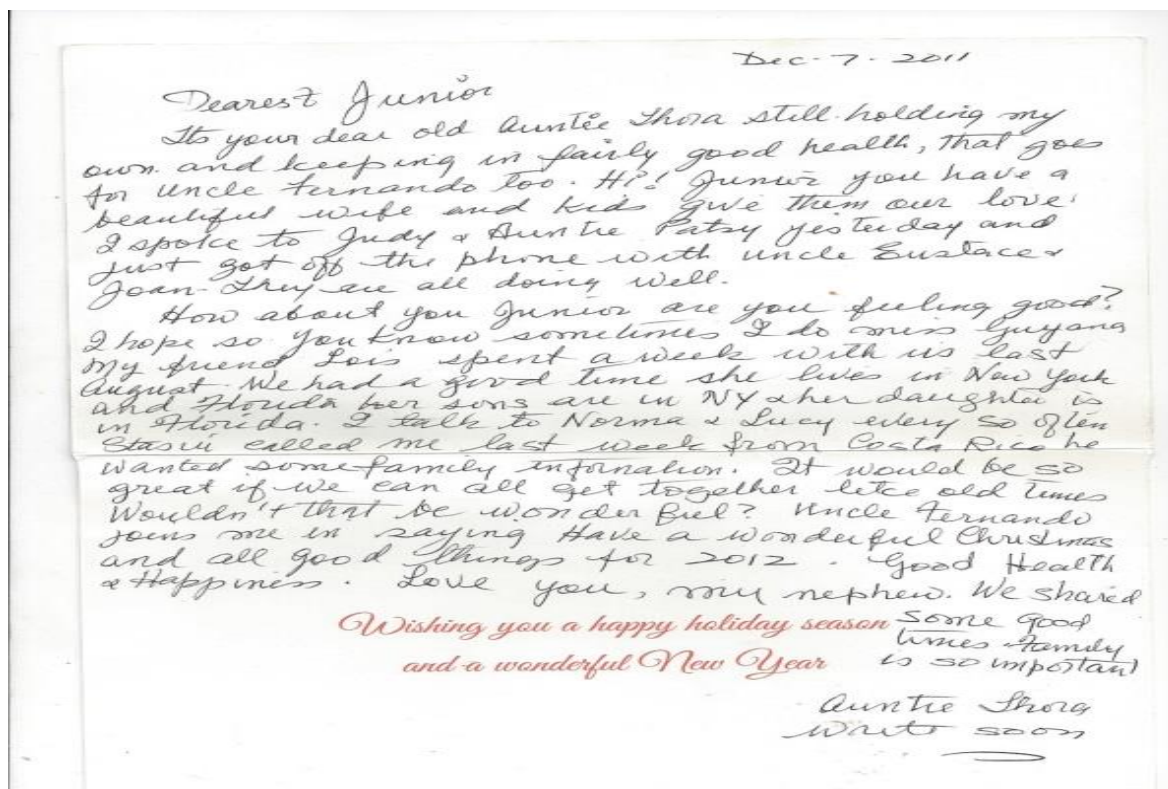 Dec - 7 - 2011
Dearest Junior
Its your dear old Auntie Thora still holding my
own and keeping in fairly good health, that goes
for Uncle Fernando too. Hi! Junior you have a
beautiful wife and kids give them our love.
I spoke to Judy & Auntie Patsy yesterday and
just got off the phone with uncle Eustace &
Joan. They are all doing well.
How about you Junior are you feeling good?
I hope so you know sometimes I do miss Guyana
My friend Lois spent a week with us last
August. We had a good time she lives in New York
and Florida her sons are in NY & her daughter is
in Florida. I talk to Norma & Lucy every so often
called me last week from Costa Rica he
wanted some family information. It would be so
great if we can all get together like old times
Wouldn't that be wonderful? Uncle Fernando
joins me in saying Have a wonderful Christmas
and all good things for 2012. Good Health
& Happiness. Love you, my nephew. We shared
some good
times - Family
is so important
Wishing you a happy holiday season
and a wonderful New Year
Auntie Thora
write soon